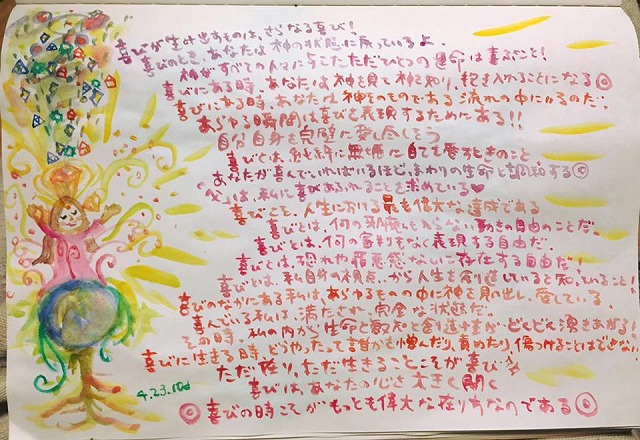 喜びが生み出すものは、さらなる喜び!
喜びのとき、あなたは神の状態に戻っているよ
神がすべての人々に与えたただひとつの運命は喜ぶこと!
喜びにある時、あなたは神を見て神を知り、神を受け入れることになる◎
喜びにある時、あなたは神そのものである流れの中にいるのだ。
あらゆる瞬間は喜びを表現するためにある!!
自分自身を完璧に愛し尽くそう
喜びとは、
あなたが喜んでいればいるほど、まわりの生命と調和する◎
"父"は、私に喜びあふれることを求めている♥
喜びこそ、人生における最も偉大な達成である
喜びとは、何の邪魔も入らない動きの自由のことだ。
喜びとは、何の審判もなく表現する自由だ。
喜びとは、恐れや罪悪感なしに存在する自由だ!
喜びとは、私自身の視点から人生を創造していると知っていること!
喜びのなかにある私は、あらゆるものの中に神を見い出し、愛している。
喜んでいる私は、満たされ、完全な状態だ。
その時、私の内から生命と叡知と創造性がどんどん湧きあがる!
喜びに生きる時、どうやったって誰かを憎んだり、責めたり、傷つけることはできない。
ただ在り、ただ生きることこそが喜び
喜びは、あなたの心を大きく開く
◎喜びの時こそがもっとも偉大な在り方なのである◎
4.23.10d